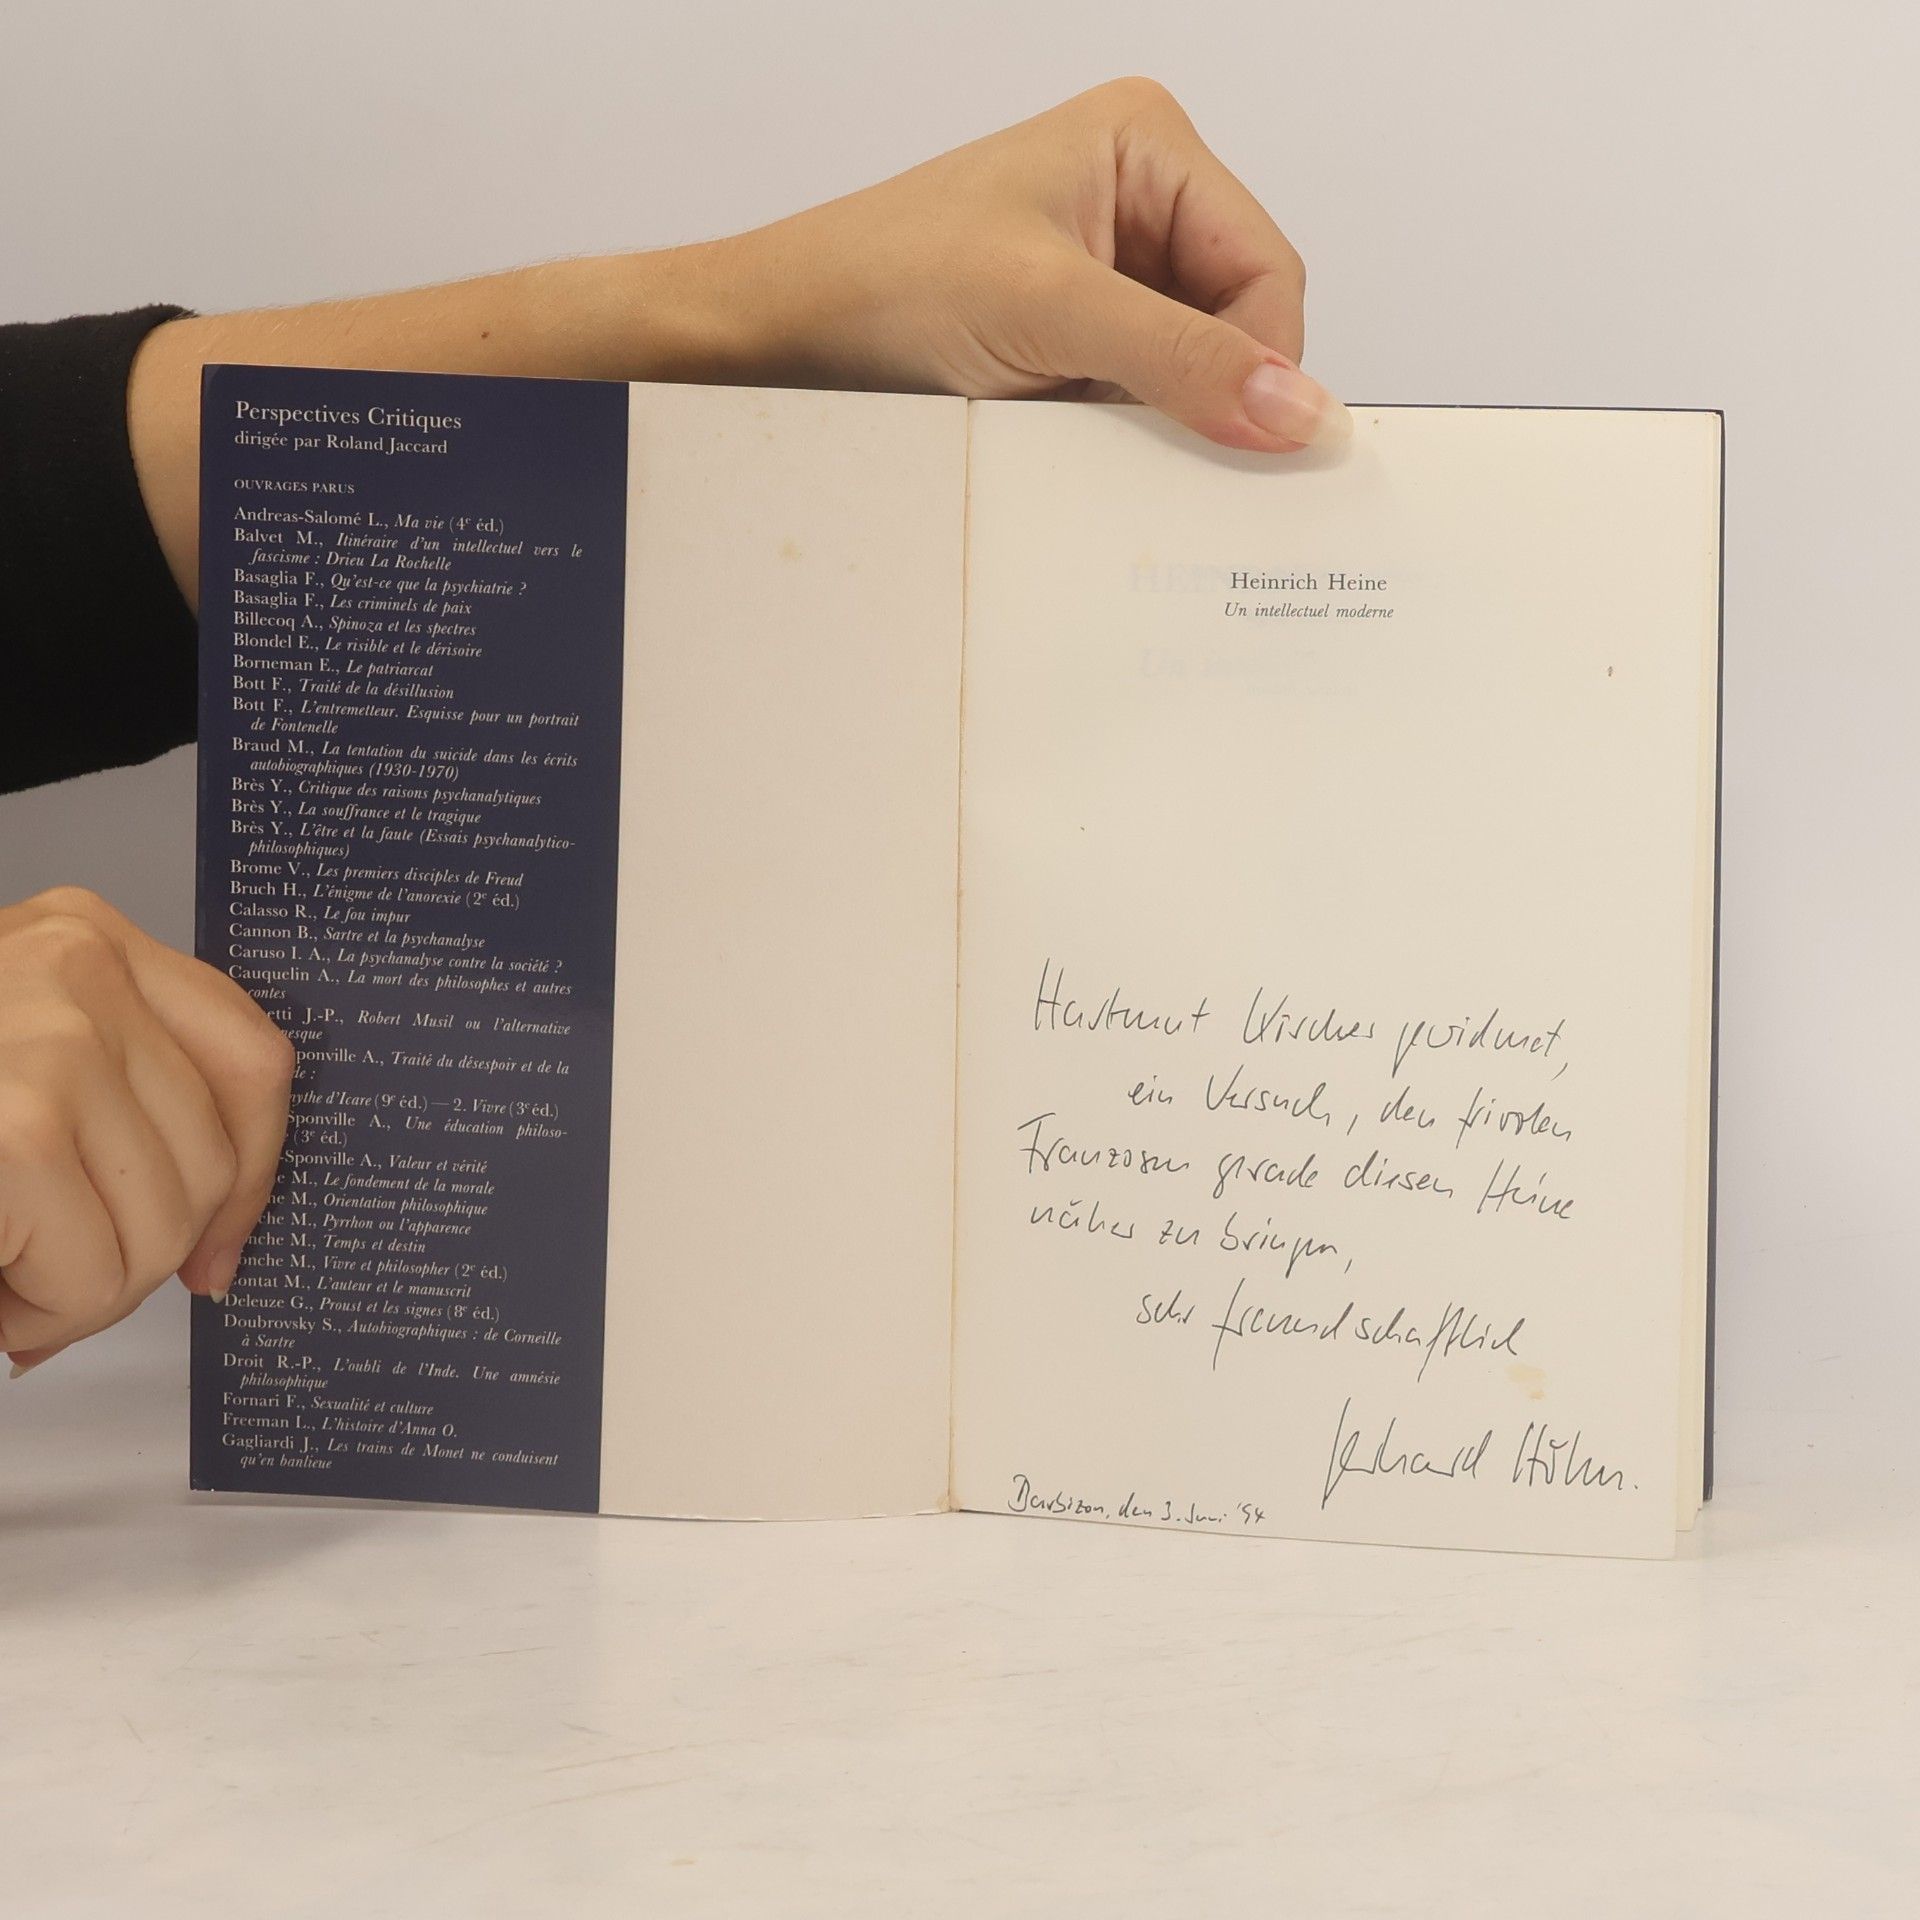 Perspectives Critiques
dirigée par Roland Jaccard
OUVRAGES PARUS
Andreas-Salomé L., Ma vie (4e éd.)
Balvet M., Itinéraire d'un intellectuel vers le
fascisme : Drieu La Rochelle
Basaglia F., Qu'est-ce que la psychiatrie ?
Basaglia F., Les criminels de paix
Billecoq A., Spinoza et les spectres
Blondel E., Le risible et le dérisoire
Borneman E., Le patriarcat
Bott F., Traité de la désillusion
Bott F., L'entremetteur. Esquisse pour un portrait
de Fontenelle
Braud M., La tentation du suicide dans les écrits
autobiographiques (1930-1970)
Brès Y., Critique des raisons psychanalytiques
Brès Y., La souffrance et le tragique
Brès Y., L'être et la faute (Essais psychanalytico-
philosophiques)
Brome V., Les premiers disciples de Freud
Bruch H., L'énigme de l'anorexie (2e éd.)
Calasso R., Le fou impur
Cannon B., Sartre et la psychanalyse
Caruso I. A., La psychanalyse contre la société ?
Cauquelin A., La mort des philosophes et autres
contes
etti J.-P., Robert Musil ou l'alternative
nesque
ponville A., Traité du désespoir et de la
de :
mythe d'Icare (9e éd.) — 2. Vivre (3e éd.)
Sponville A., Une éducation philoso-
(3e éd.)
-Sponville A., Valeur et vérité
e M., Le fondement de la morale
ne M., Orientation philosophique
che M., Pyrrhon ou l'apparence
nche M., Temps et destin
onche M., Vivre et philosopher (2e éd.)
Contat M., L'auteur et le manuscrit
Deleuze G., Proust et les signes (8e éd.)
Doubrovsky S., Autobiographiques : de Corneille
à Sartre
Droit R.-P., L'oubli de l'Inde. Une amnésie
philosophique
Fornari F., Sexualité et culture
Freeman L., L'histoire d'Anna O.
Gagliardi J., Les trains de Monet ne conduisent
qu'en banlieue
Heinrich Heine
Un intellectuel moderne
Hartmut Kircher gewidmet,
ein Versuch, den frivolen
Franzosen gerade diesen Heine
näher zu bringen,
sehr freundschaftlich
Gerhard Höhn.
Barbizon, den 3. Juni '94